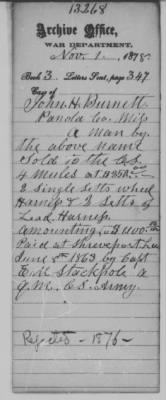 13268
Archive Office,
WAR DEPARTMENT.
Nov. 1 1878
Book 3 Letters Sent, page 347
Copy of
John H. Burnett
Panola Co. Miss
a man by
the above name
sold to the C.S.
4 Mules at
2 Single Setts wheel
Harness & 2 Setts of
Lead Harness
amounting to $1100.
Paid at Shreveport La
June 8th 1863 by Capt
E. W. Stackpole a
Q.M. C.S. Army.
1876